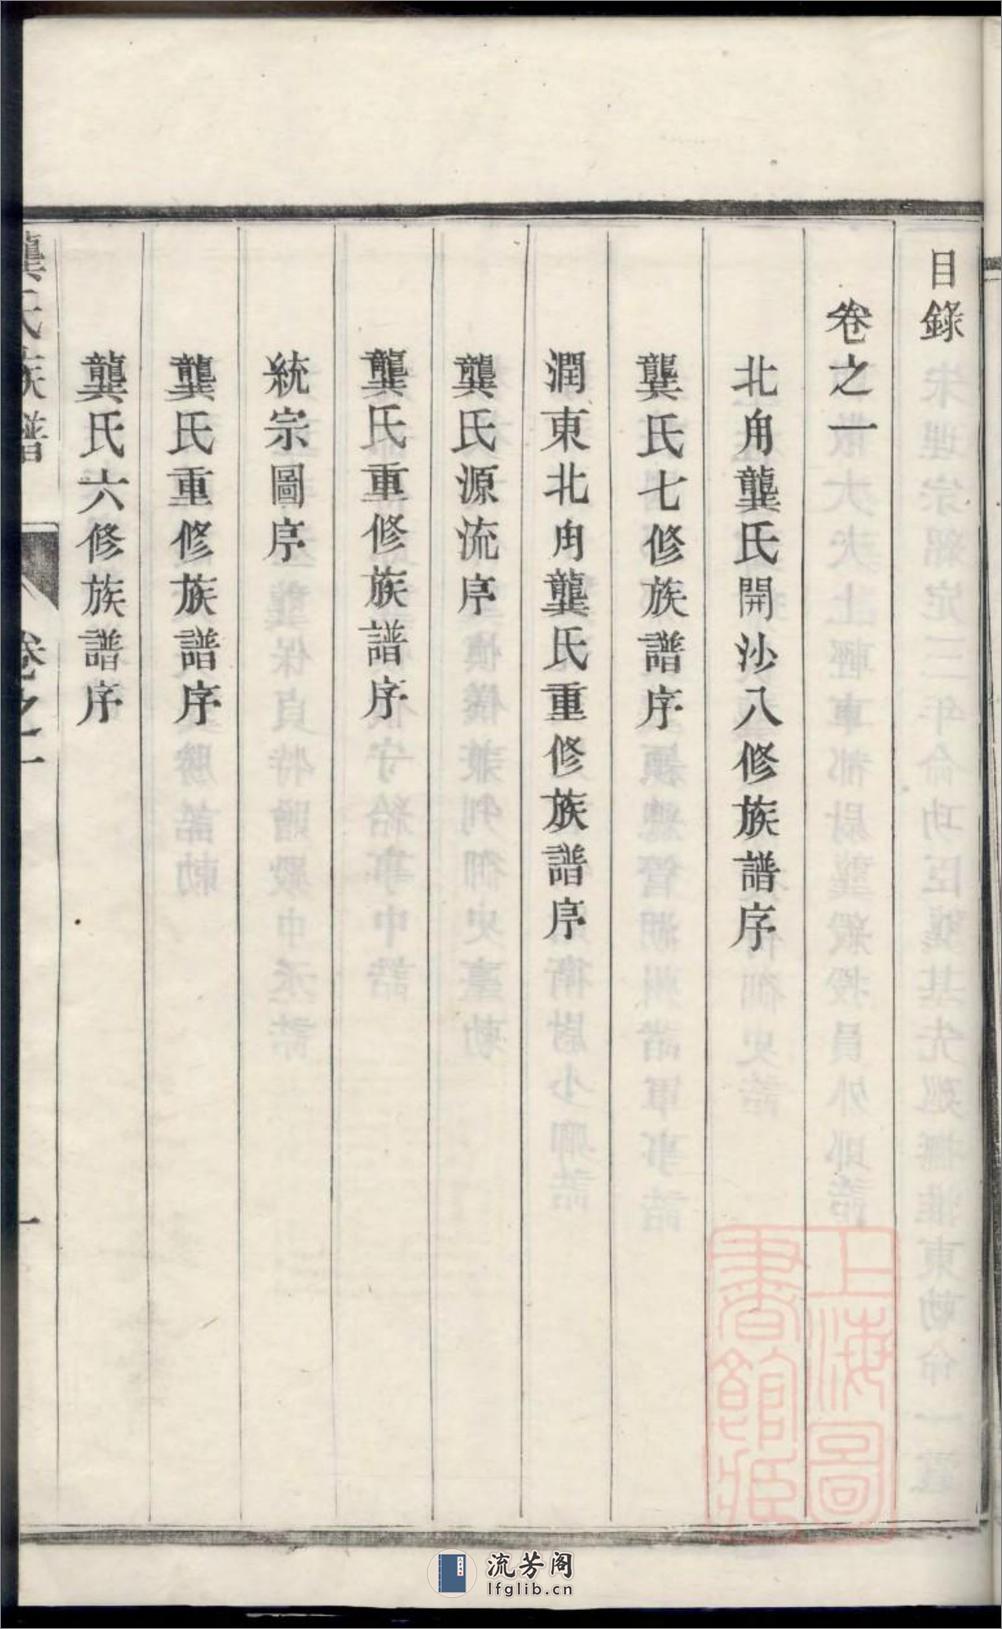 目錄
卷之一
北甪龔氏開沙八修族譜序
龔氏七修族譜序
潤東北甪龔氏重修族譜序
龔氏源流序
龔氏重修族譜序
統宗圖序
龔氏重修族譜序
龔氏六修族譜序
龔氏族譜
卷之一
一
上海圖書館藏
流芳阁
lfglib.cn